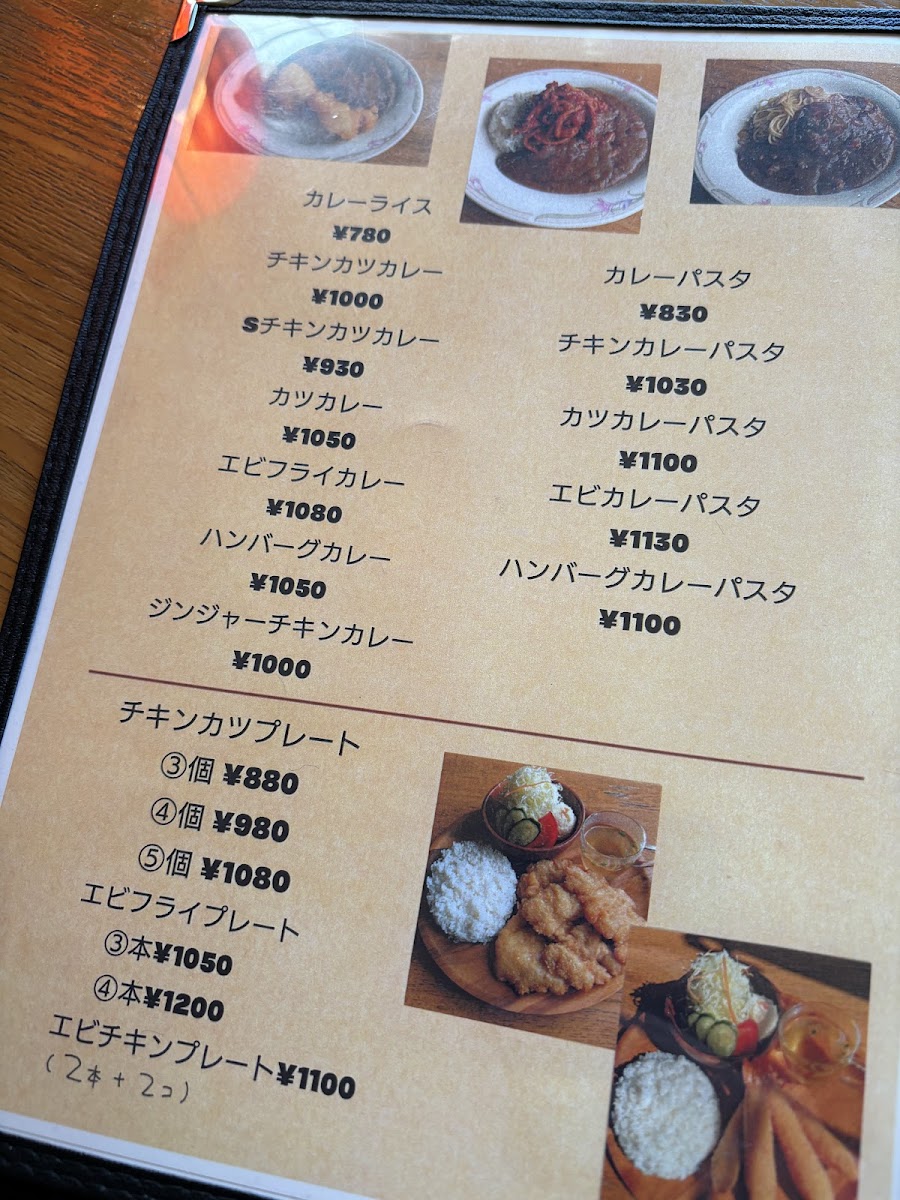 カレーライス
¥780
チキンカツカレー
¥1000
Sチキンカツカレー
¥930
カツカレー
¥1050
エビフライカレー
¥1080
ハンバーグカレー
¥1050
ジンジャーチキンカレー
¥1000
カレーパスタ
¥830
チキンカレーパスタ
¥1030
カツカレーパスタ
¥1100
エビカレーパスタ
¥1130
ハンバーグカレーパスタ
¥1100
チキンカツプレート
③個 ¥880
④個 ¥980
⑤個 ¥1080
エビフライプレート
③本¥1050
④本¥1200
エビチキンプレート¥1100
(2本+2コ)